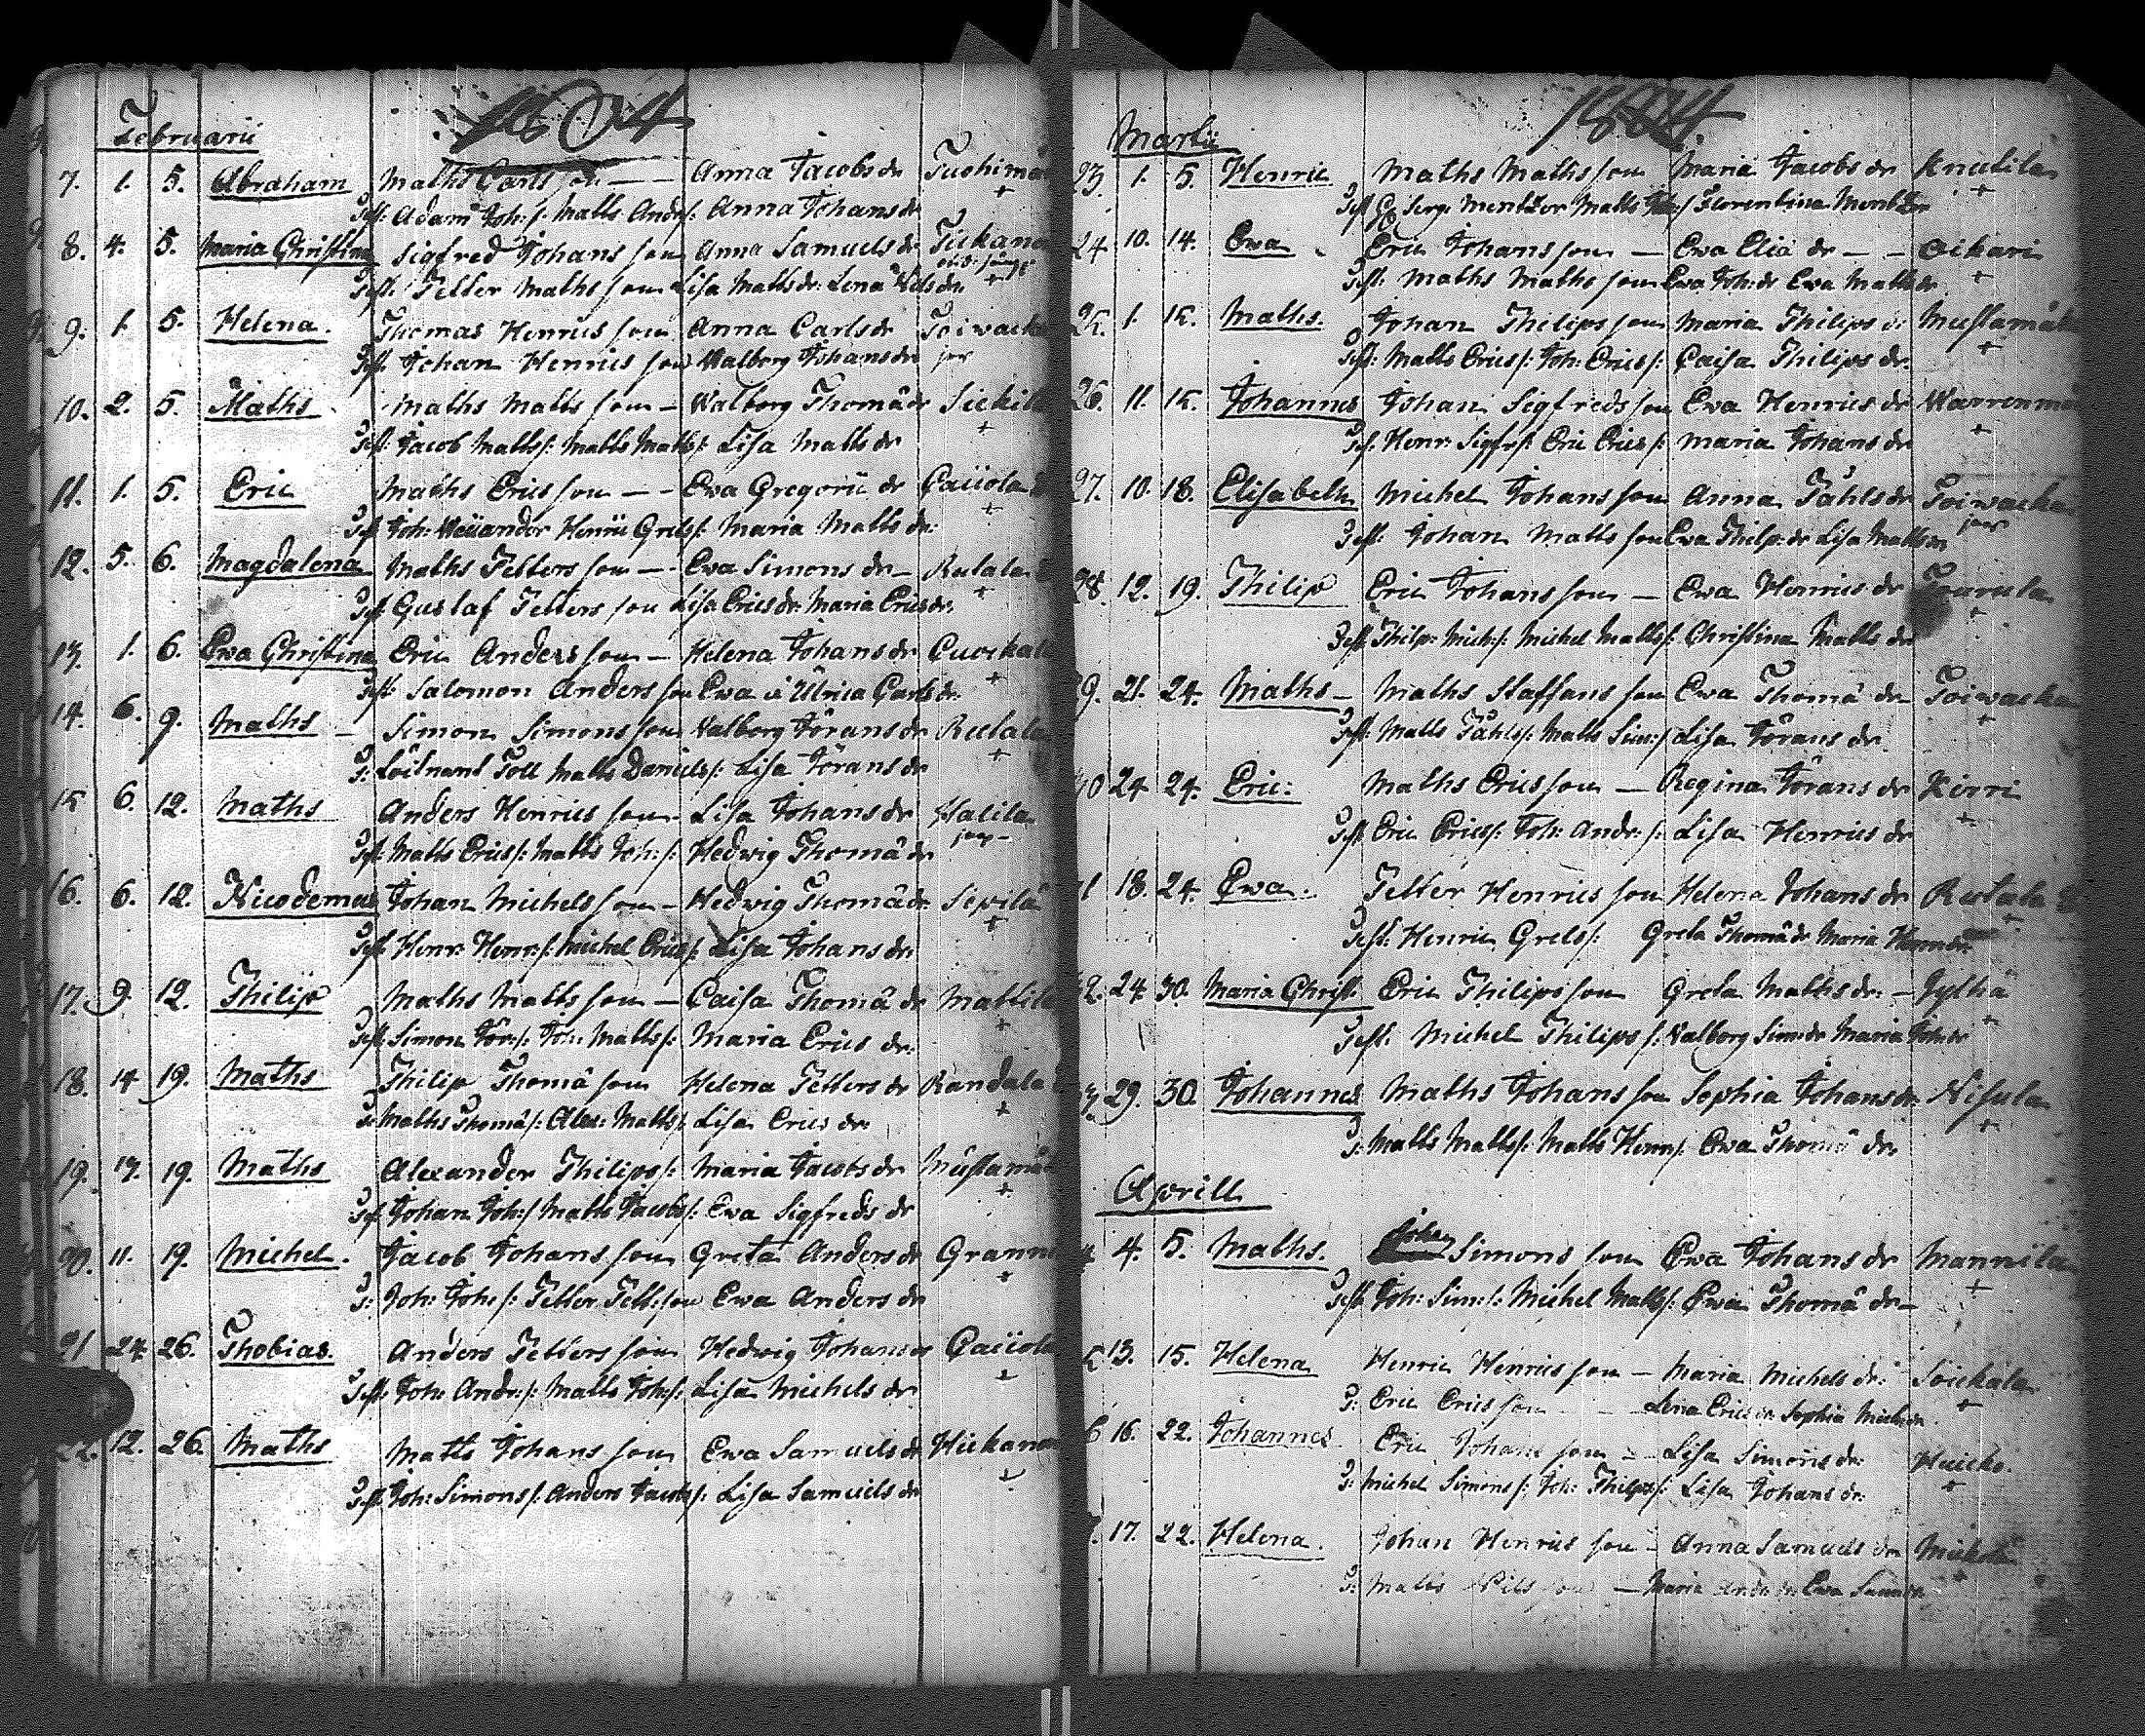 1804
Februarii
7. 1. 5. Abraham Maths Carls son — Anna Jacobs dr
Test: Adam Joh: s: Matts Andr s: Anna Johans dr
8. 4. 5. Maria Christina Sigfred Johans son Anna Samuels dr
Test: Petter Maths son Lisa Matts dr: Lena Nils dr:
9. 1. 5. Helena. Thomas Henrics son Anna Carls dr
Test: Johan Henrics son Walborg Johans dr
10. 2. 5. Maths. Maths Matts son — Walborg Thomæ dr
Test: Jacob Matts s: Matts Matts s: Lisa Matts dr
11. 1. 5. Eric Maths Erics son — Ewa Gregorii dr
Test: Joh: Henric Grels s: Maria Matts dr:
12. 5. 6. Magdalena Maths Petters son — Ewa Simons dr — Rutala
Test: Gustaf Petters son Lisa Erics dr: Maria Erics dr:
13. 1. 6. Ewa Christina Eric Anders son — Helena Johans dr
Test: Salomon Anders son Ewa & Ulrica Carls dr:
14. 6. 9. Maths — Simon Simons son Walborg Jörans dr Rutala
T: Löitnant Toll Matts Daniels s: Lisa Jörans dr
15 6. 12. Maths Anders Henrics son — Lisa Johans dr Halila
Test: Matts Erics s: Matts Joh: s: Hedwig Thomæ dr
16. 6. 12. Nicodemus Johan Michels son — Hedwig Thomæ dr Sepilä
Test: Henr: Henr: s: Michel Erics s: Lisa Johans dr:
17. 9. 12. Philip Maths Matts son — Caisa Thomæ dr Mattila
Test: Simon Jör: s: Joh: Matts s: Maria Erics dr:
18. 14 19. Maths Philip Thomæ son Helena Petters dr Randala
T: Maths Thomæ s: Alex: Matts s: Lisa Erics dr:
19. 17. 19. Maths Alexander Philips s: Maria Jacobs dr
Test: Johan Joh: s: Matts Jacobs s: Ewa Sigfreds dr
20. 11. 19. Michel. Jacob Johans son Greta Anders dr
T: Joh: Joh: s: Petter Pett: son Ewa Anders dr
21 24. 26. Thobias. Anders Petters son Hedwig Johans dr
Test: Joh: Andr: s: Matts Joh: s: Lisa Michels dr
22. 12. 26. Maths Matts Johans son Ewa Samuels dr
Test: Joh: Simons s: Anders Jacobs s: Lisa Samuels dr
1804
Martii
23. 1. 5. Henric Maths Maths son Maria Jacobs dr Knutila
Test: Serg: Mentzer Matts s: Florentina Mentzer
24 10. 14. Ewa Eric Johans son — Ewa Eliæ dr — Oikari
Test: Maths Maths son Ewa Joh: dr Ewa Matts dr
25. 1. 15. Maths. Johan Philips son Maria Philips dr
Test: Matts Erics s: Joh: Erics s: Caisa Philips dr.
26. 11. 15. Johannes Johan Sigfreds son Ewa Henrics dr
Test: Henr: Sigfr s: Eric Erics s: Maria Johans dr
27. 10. 18. Elisabeth Michel Johans son Anna Påhls dr Toiwacka
Test: Johan Matts son Ewa Philp: dr Lisa Matts dr
28. 12. 19. Philip Eric Johans son — Ewa Henrics dr
Test: Philp: Mich: s: Michel Matts s: Christina Matts dr
29. 21. 24. Maths — Maths Staffans son Ewa Thomæ dr — Toiwacka
Test: Matts Påhls s: Matts Sim: s: Lisa Jörans dr.
30 24 24. Eric: Maths Erics son — Regina Jörans dr Kirri
Test: Eric Erics s: Joh: Andr: s: Lisa Henrics dr
31 18. 24. Ewa. Petter Henrics son Helena Johans dr Rutala
Test: Henric Grels s: Greta Thomæ dr Maria
32. 24. 30. Maria Christ. Eric Philips son Greta Maths dr: — Jylhä
Test: Michel Philips s: Walborg Sim: dr Maria Joh: dr
33 29. 30. Johannes Maths Johans son Sophia Johans dr: Nisula
T: Matts Matts s: Matts Henr: s: Ewa Thomæ dr.
Aprill
4. 5. Maths. Johan Simons son Ewa Johans dr Mannila
Test: Joh: Sim: s: Michel Matts s: Ewa Thomæ dr —
13. 15. Helena Henric Henrics son — Maria Michels dr:
T: Eric Erics son — Lena Erics dr Sophia Michels dr
6 16. 22. Johannes Eric Johans son — Lisa Simons dr:
T: Michel Simons s: Joh: Philips s: Lisa Johans dr:
17. 22. Helena. Johan Henrics son — Anna Samuels dr
T: Matts Nils son — Maria Andr: dr Ewa